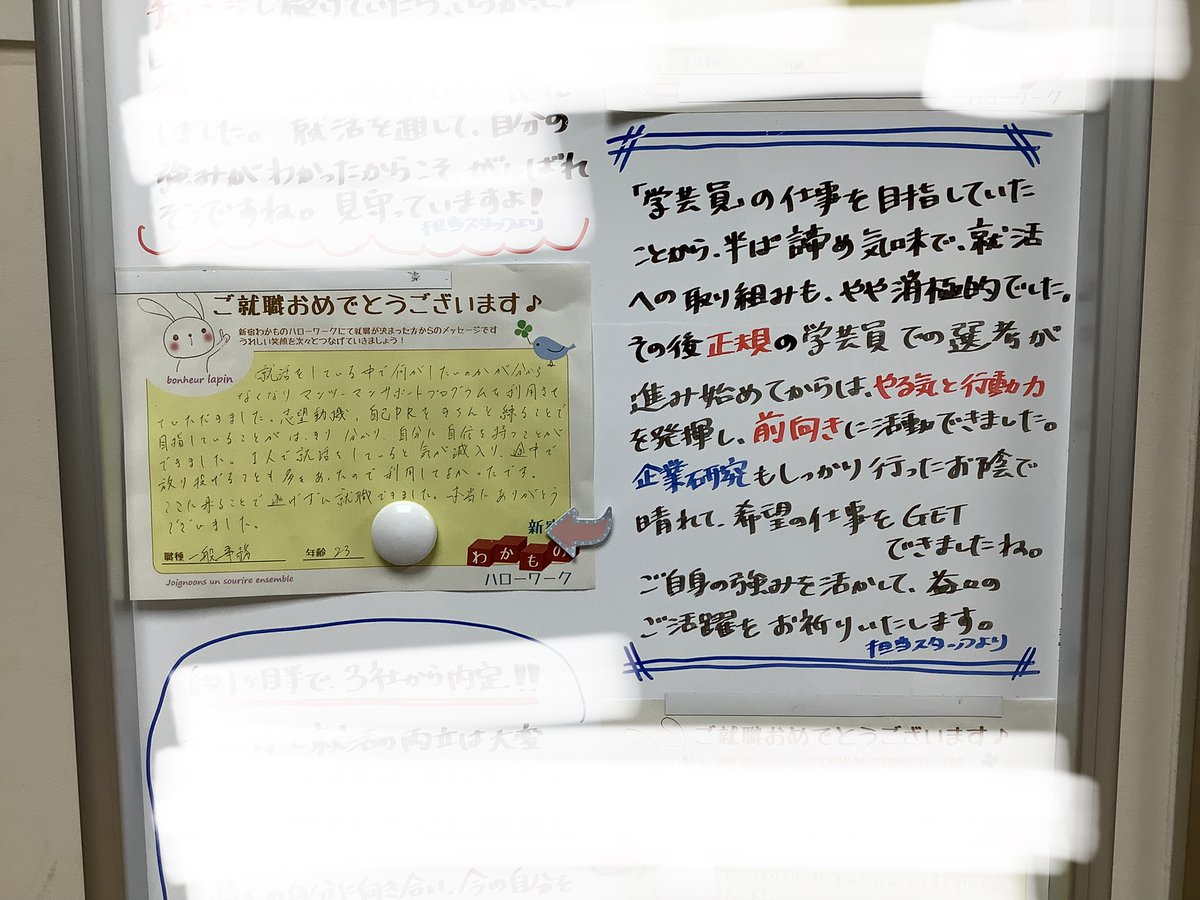 しました。就活を通して、自分の
強みがわかったからこそ、がんばれ
そうですね。見守っていますよ!
担当スタッフより
ご就職おめでとうございます♪
新宿わかものハローワークにて就職が決まった方からのメッセージです
うれしい笑顔を次々とつなげていきましょう!
bonheur lapin
就活をしている中で何がしたいのかが分から
なくなり マンツーマンサポートプログラムを利用させ
ていただきました。志望動機、自己PRをきちんと練ることで
目指していることがはっきり分かり、自分に自信を持つことが
できました。1人で就活をしていると気が滅入り、途中で
放り投げることも多々あったので利用してよかったです。
ここに来ることで逃げずに就職できました。本当にありがとう
ございました。
職種 一般事務 年齢 23
Joignoons un sourire ensemble
新宿
わかもの
ハローワーク
1ヶ月半で、3社から内定!!
就活の両立は大変
自分に向き合い、今の自分を
ハローワーク
「学芸員」の仕事を目指していた
ことから、半ば諦め気味で、就活
への取り組みも、やや消極的でした。
その後正規の学芸員での選考が
進み始めてからは、やる気と行動力
を発揮し、前向きに活動できました。
企業研究もしっかり行ったお陰で
晴れて、希望の仕事をGET
できましたね。
ご自身の強みを活かして、益々の
ご活躍をお祈りいたします。
担当スタッフより
ご就職おめでとうございます♪